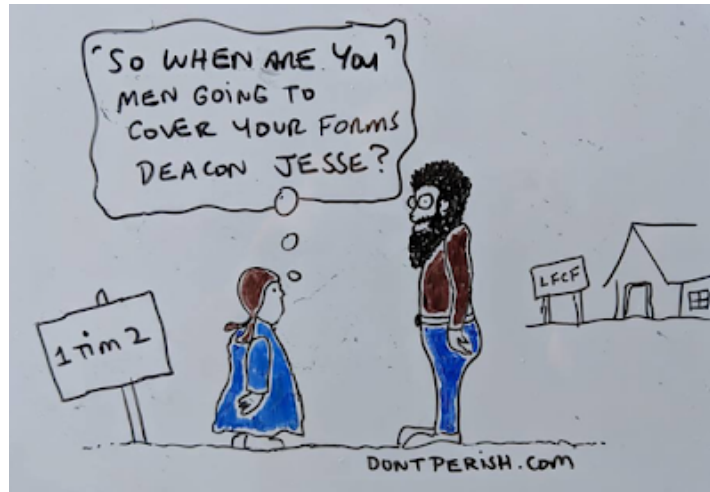 "SO WHEN ARE YOU"
MEN GOING TO
COVER YOUR FORMS
DEACON JESSE?
1 Tim 2
LFCF
DONTPERISH.COM